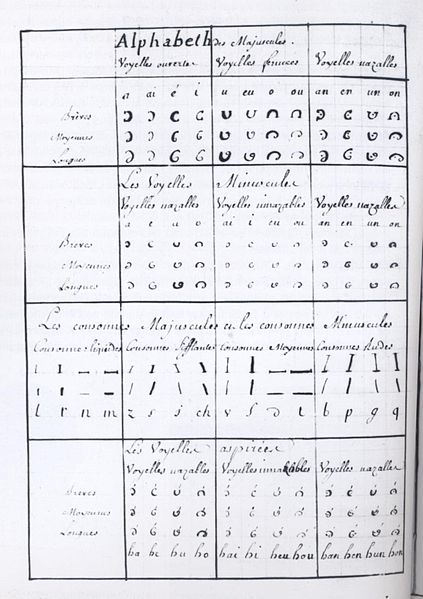 Alphabeth des Majuscules.
Voyelles ouvertes Voyelles fermées Voyelles nazalles
a ai é i u eu o ou an en un on
Brèves
Moyennes
Longues
Les Voyelles Minuscules
Voyelles nazales Voyelles innazables Voyelles nazales
a e u o ai i eu ou an en un on
Breves
Moyennes
Longues
Les consonnes Majuscules et les consonnes Minuscules
Consonnes liquides Consonnes Sifflantes Consonnes Moyennes Consonnes Rudes
l r n m z s j ch v f d t b p g q
Les Voyelles aspirées
Voyelles nazales Voyelles Voyelles nazales
Breves
Moyennes
Longues
ha he hu ho hai hi heu hou han hen hun hon